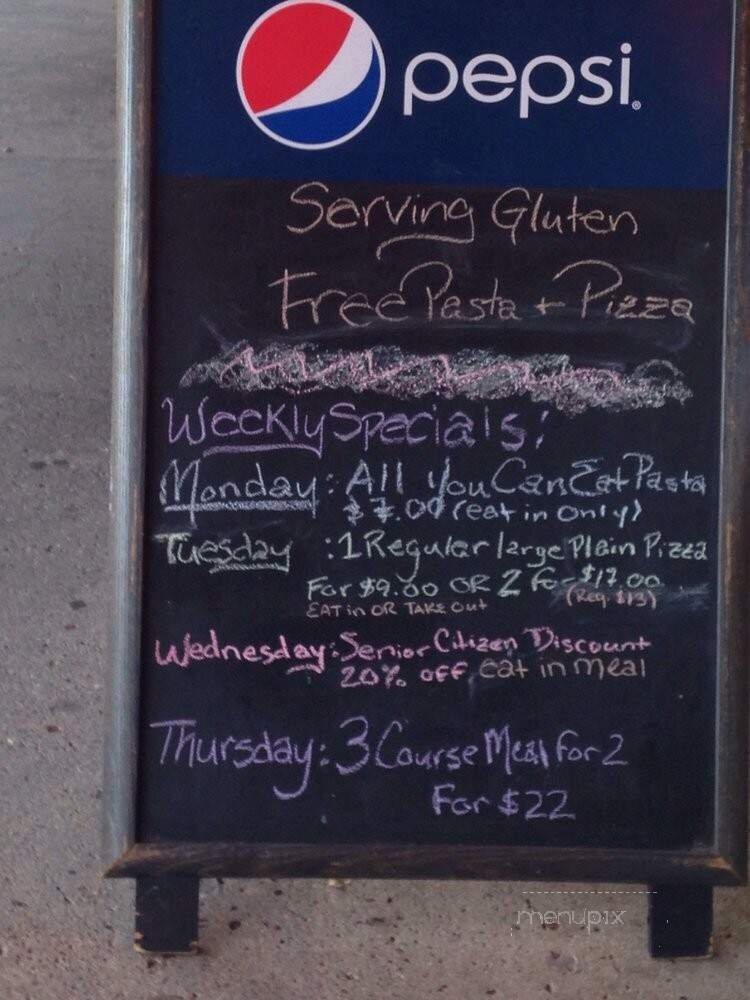 pepsi®
Serving Gluten
Free Pasta + Pizza
Weekly Specials:
Monday: All You Can Eat Pasta
$7.00 (eat in only)
Tuesday: 1 Regular large Plain Pizza
For $9.00 OR 2 for $17.00
EAT in OR TAKE OUT (Reg. $13)
Wednesday: Senior Citizen Discount
20% off eat in meal
Thursday: 3 Course Meal for 2
For $22
menupix